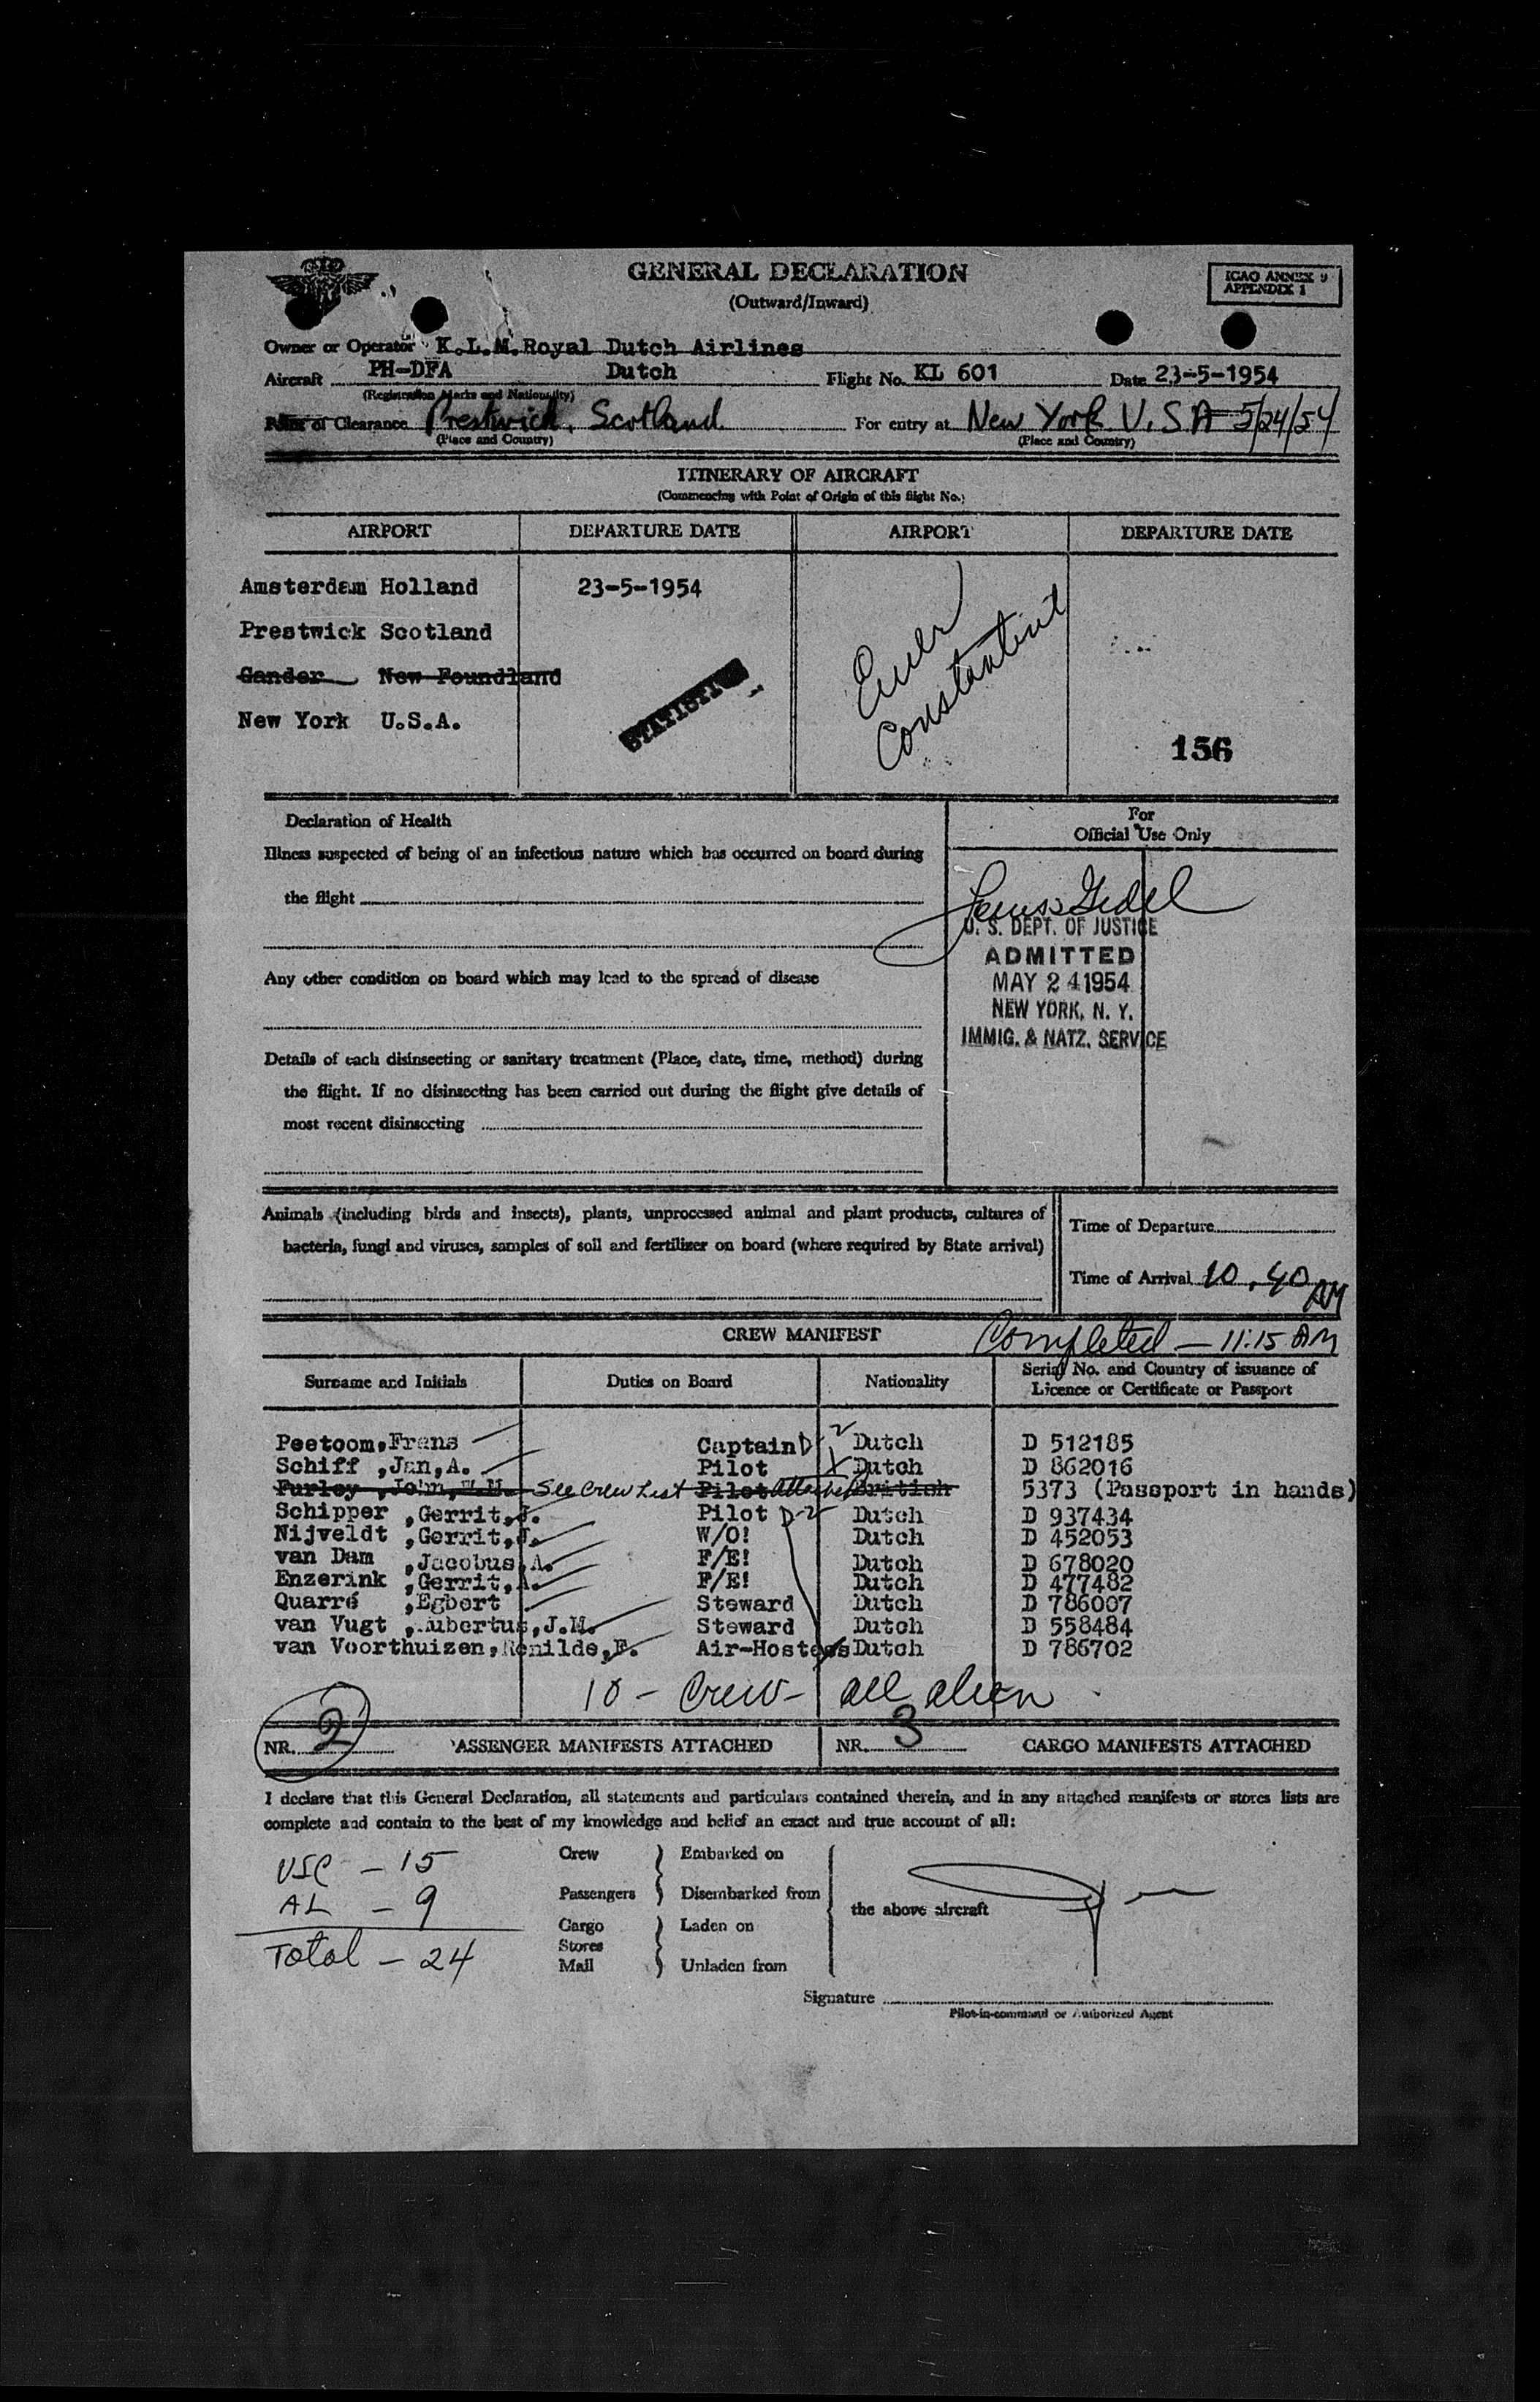 GENERAL DECLARATION
(Outward/Inward)
ICAO ANNEX 9
APPENDIX 1
Owner or Operator K.L.M. Royal Dutch Airlines
Aircraft PH-DFA Dutch Flight No. KL 601 Date 23-5-1954
(Registration Marks and Nationality)
Point of Clearance Prestwick, Scotland For entry at New York U.S.A 5/24/54
(Place and Country) (Place and Country)
ITINERARY OF AIRCRAFT
(Commencing with Point of Origin of this flight No.)
AIRPORT DEPARTURE DATE AIRPORT DEPARTURE DATE
Amsterdam Holland 23-5-1954
Prestwick Scotland
Gander New Foundland
New York U.S.A.
Constantint
156
Declaration of Health
For
Official Use Only
Illness suspected of being of an infectious nature which has occurred on board during
the flight
U. S. DEPT. OF JUSTICE
ADMITTED
MAY 24 1954
NEW YORK, N. Y.
IMMIG. & NATZ. SERVICE
Any other condition on board which may lead to the spread of disease
Details of each disinsecting or sanitary treatment (Place, date, time, method) during
the flight. If no disinsecting has been carried out during the flight give details of
most recent disinsecting
Animals (including birds and insects), plants, unprocessed animal and plant products, cultures of
bacteria, fungi and viruses, samples of soil and fertilizer on board (where required by State arrival)
Time of Departure
Time of Arrival 10.40 AM
CREW MANIFEST Completed - 11:15 AM
Surname and Initials Duties on Board Nationality Serial No. and Country of issuance of
Licence or Certificate or Passport
Peetoom, Frans Captain D-2 Dutch D 512185
Schiff ,Jan,A. Pilot Dutch D 862016
Furley ,John, See Crew List Pilot attached British 5373 (Passport in hands)
Schipper ,Gerrit,J. Pilot D-2 Dutch D 937434
Nijveldt ,Gerrit,J. W/O! Dutch D 452053
van Dam ,Jacobus,A. F/E! Dutch D 678020
Enzerink ,Gerrit,A. F/E! Dutch D 477482
Quarré ,Egbert Steward Dutch D 786007
van Vugt ,Hubertus,J.M. Steward Dutch D 558484
van Voorthuizen,Renilde,F. Air-Hostess Dutch D 786702
10 - Crew - all alien
NR. 2 PASSENGER MANIFESTS ATTACHED NR. 3 CARGO MANIFESTS ATTACHED
I declare that this General Declaration, all statements and particulars contained therein, and in any attached manifests or stores lists are
complete and contain to the best of my knowledge and belief an exact and true account of all:
USC - 15
AL - 9
Total - 24
Crew Embarked on
Passengers Disembarked from
the above aircraft
Cargo Laden on
Stores
Mail Unladen from
Signature
Pilot-in-command or Authorized Agent